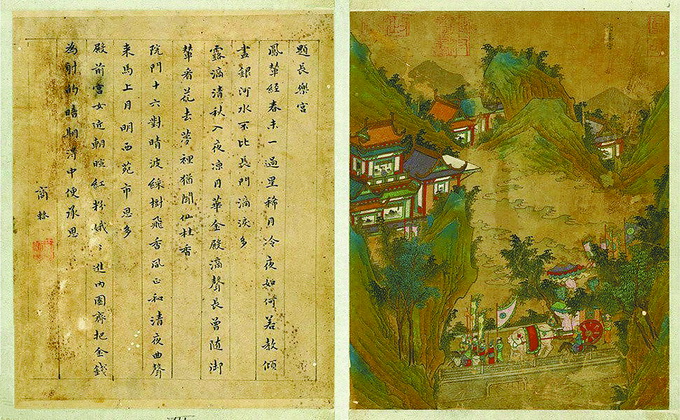 題長樂宮
鳳輦經春未一過星稀月冷夜如何若教傾
盡銀河水不比長門滴淚多
露滴清秋入夜涼月華金殿漏聲長曾隨御
輦看花去夢裡猶聞仙杜香
院門十六對晴波綵樹飛香風正和清夜曲聲
來馬上月明西苑市恩多
殿前宮女近朝暄紅粉娥々進內園齊把金錢
為射的暗期得中便承恩